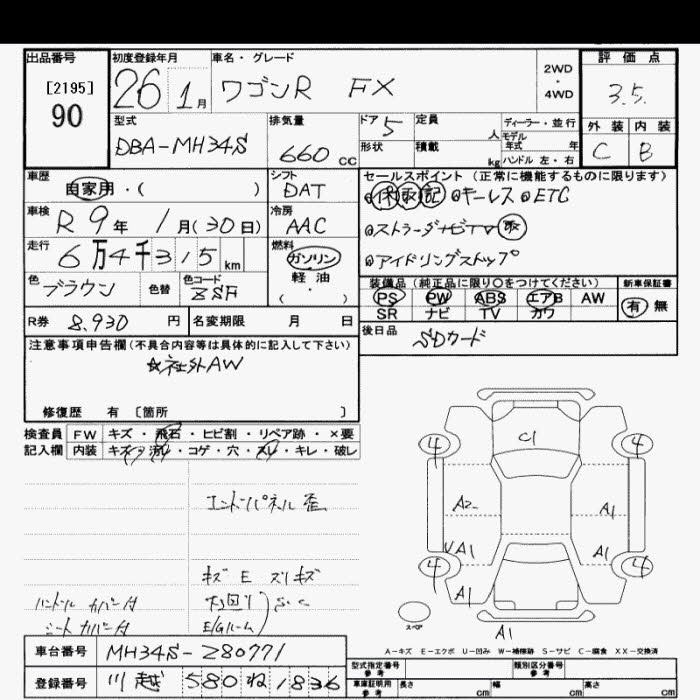 出品番号 初度登録年月 車名・グレード 評価点
[2195]
90
26 1月 ワゴンR FX 2WD・4WD 3.5
型式 排気量 ドア 5 定員 人 ディーラー・並行 外装 内装
DBA-MH34S 660 cc 形状 積載 kg モデル年式 年 C B
ハンドル 左・右
車歴 シフト セールスポイント(正常に機能するものに限ります)
自家用・( ) DAT 保 取 記 キーレス ETC
車検 冷房
R 9年 1月(30日) AAC ストラーダナビTV 取
走行 燃料 アイドリングストップ
6万4千315km ガソリン
軽油
( )
色 ブラウン 色替 色コード ZSF 装備品(純正品に限り〇をつけてください) 新車保証書
PS PW ABS エアB AW 有 無
SR ナビ TV カワ
R券 8,930円 名変期限 月 日 後日品 SDカード
注意事項申告欄(不具合内容等は具体的に記入して下さい)
☆社外AW
修復歴 有 〔箇所 〕
検査員 FW キズ・飛石・ヒビ割・リペア跡・×要
記入欄 内装 キズ・汚レ・コゲ・穴・スレ・キレ・破レ
エンドパネル歪
キズ E スリキズ
下回り S.C
ハンドルカバー付
シートカバー付 E/Gルーム
C1
4 4
A2 A1
UA1 A1
4 4
A1
スペア
A1
A-キズ E-エクボ U-凹み W-補修跡 S-サビ C-腐食 XX-交換済
車台番号 MH34S-280771
登録番号 川越 580 ね 1836
型式指定番号 参考 類別区分番号 参考
車庫証明用 参考 長さ cm 幅 cm 高さ cm